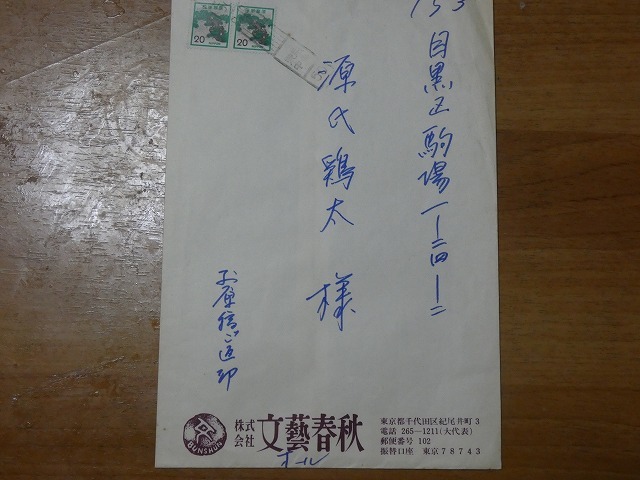 153
目黒区駒場一ー二四ー二
源氏鶏太 様
日本郵便
20
日本郵便
20
株式会社 文藝春秋
オール
BUNSHUN
東京都千代田区紀尾井町3
電話 265―1211(大代表)
郵便番号 102
振替口座 東京 78743